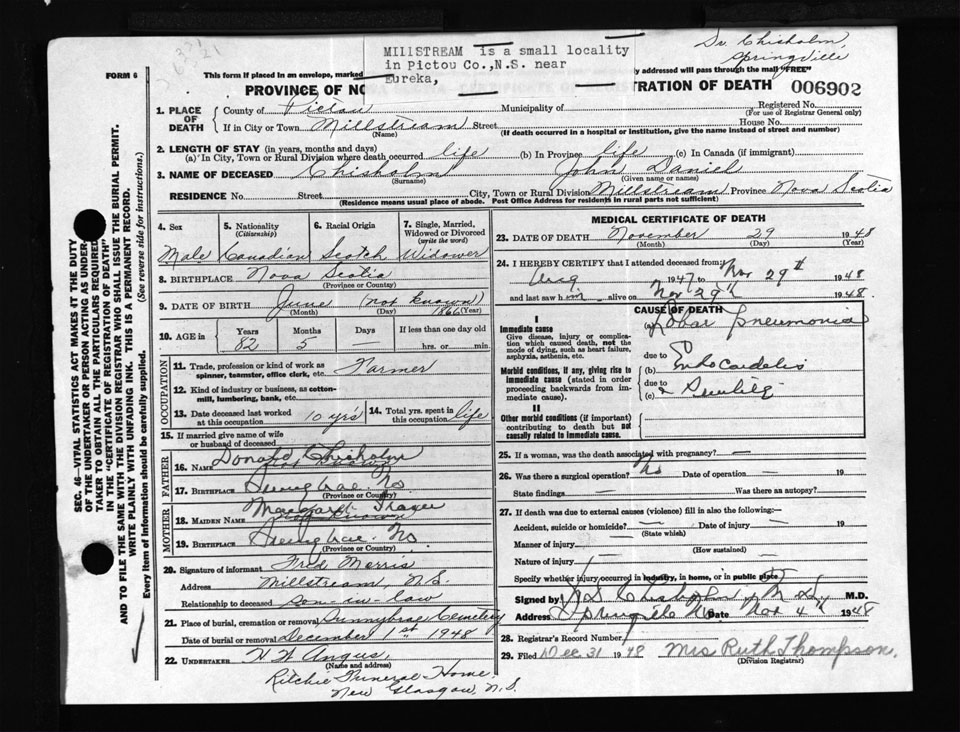 Dr. Chisholm,
Springville
MILLSTREAM is a small locality
in Pictou Co.,N.S. near
Eureka,
FORM 6
This form if placed in an envelope, marked
y addressed will pass through the mail "FREE"
PROVINCE OF NO
TRATION OF DEATH 006902
1. PLACE OF DEATH
County of Pictou Municipality of
Registered No.
(For use of Registrar General only)
If in City or Town Millstream Street House No.
(Name) (If death occurred in a hospital or institution, give the name instead of street and number)
2. LENGTH OF STAY (in years, months and days)
(a) In City, Town or Rural Division where death occurred life (b) In Province life (c) In Canada (if immigrant)
3. NAME OF DECEASED Chisholm John Daniel
(Surname) (Given name or names)
RESIDENCE No. Street City, Town or Rural Division Millstream Province Nova Scotia
(Residence means usual place of abode. Post Office Address for residents in rural parts not sufficient)
4. Sex
Male
5. Nationality
(Citizenship)
Canadian
6. Racial Origin
Scotch
7. Single, Married,
Widowed or Divorced
(write the word)
Widower
8. BIRTHPLACE Nova Scotia
(Province or Country)
9. DATE OF BIRTH June (not known) 1866
(Month) (Day) (Year)
10. AGE in
Years Months Days If less than one day old
82 5 — hrs. or min.
OCCUPATION
11. Trade, profession or kind of work as
spinner, teamster, office clerk, etc. Farmer
12. Kind of industry or business, as cotton-
mill, lumbering, bank, etc.
13. Date deceased last worked
at this occupation 10 yrs
14. Total yrs. spent in
this occupation life
15. If married give name of wife
or husband of deceased
FATHER
16. NAME Donald Chisholm
17. BIRTHPLACE
(Province or Country)
MOTHER
18. MAIDEN NAME Margaret Fraser
19. BIRTHPLACE
(Province or Country)
20. Signature of informant Fred Morris
Address Millstream, N.S.
Relationship to deceased son-in-law
21. Place of burial, cremation or removal Sunnybrae Cemetery
Date of burial or removal December 1st 1948
22. UNDERTAKER W W Angus
(Name and address)
Ritchie Funeral Home
New Glasgow, N.S.
MEDICAL CERTIFICATE OF DEATH
23. DATE OF DEATH November 29 1948
(Month) (Day) (Year)
24. I HEREBY CERTIFY that I attended deceased from:
Aug 1947 to Nov 29th 1948
and last saw him alive on Nov 29th 1948.
CAUSE OF DEATH
I
Immediate cause
Give disease, injury or complication
which caused death, not the
mode of dying, such as heart failure,
asphyxia, asthenia, etc.
(a) Lobar Pneumonia
due to
Morbid conditions, if any, giving rise to
immediate cause (stated in order
proceeding backwards from immediate
cause).
(b) Endocarditis
due to
(c) Senility
II
Other morbid conditions (if important)
contributing to death but not
causally related to immediate cause.
25. If a woman, was the death associated with pregnancy? —
26. Was there a surgical operation? No Date of operation — 19
State findings — Was there an autopsy?
27. If death was due to external causes (violence) fill in also the following:—
Accident, suicide or homicide? — Date of injury — 19
(State which)
Manner of injury —
(How sustained)
Nature of injury
Specify whether injury occurred in industry, in home, or in public place
Signed by Chisholm M.D.
Address Springville Date Nov 4th 1948
28. Registrar's Record Number
29. Filed Dec 31 1948 Mrs Ruth Thompson.
(Division Registrar)
SEC. 46—VITAL STATISTICS ACT MAKES IT THE DUTY
OF THE UNDERTAKER OR PERSON ACTING AS UNDERTAKER
TO OBTAIN ALL THE PARTICULARS REQUIRED
IN THE "CERTIFICATE OF REGISTRATION OF DEATH"
AND TO FILE THE SAME WITH THE DIVISION REGISTRAR WHO SHALL ISSUE THE BURIAL PERMIT.
WRITE PLAINLY WITH UNFADING INK. THIS IS A PERMANENT RECORD.
Every item of Information should be carefully supplied. (See reverse side for instructions.)